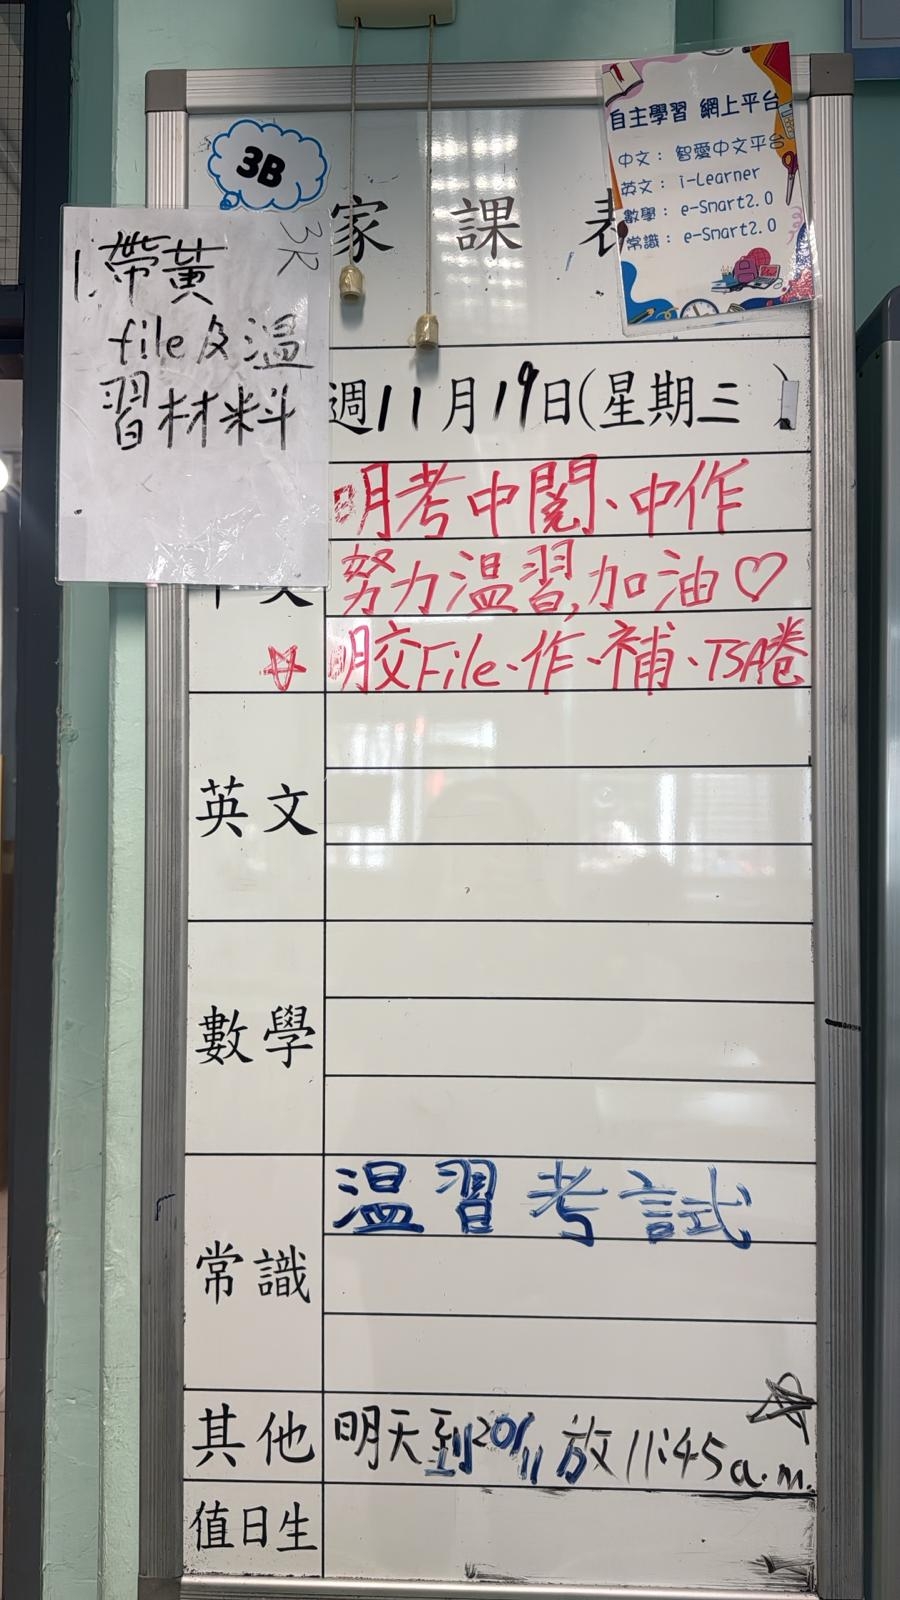 3B
家課表
自主學習 網上平台
中文： 智愛中文平台
英文： i-Learner
數學： e-Smart2.0
常識： e-Smart2.0
3R
1. 帶黃
file及溫
習材料
週11月19日(星期三)
明考中閱、中作
努力溫習,加油♡
明交File、作、補、TSA卷
英文
數學
常識
溫習考試
其他
明天到20/11放11:45a.m.
值日生